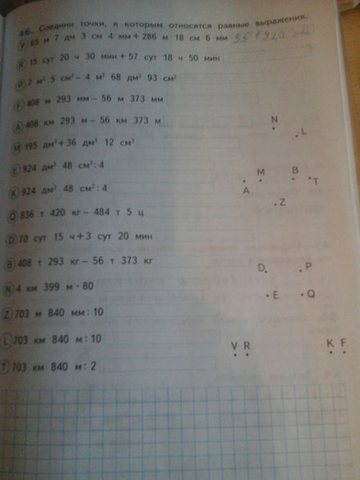 46. Соедини точки, к которым относятся равные выражения.
V 65 м 7 дм 3 см 4 мм + 286 м 18 см 6 мм
R 15 сут 20 ч 30 мин + 57 сут 18 ч 50 мин
P 7 м² 5 см² − 4 м² 68 дм² 93 см²
F 408 м 293 мм − 56 м 373 мм
A 408 км 293 м − 56 км 373 м
M 195 дм³ + 36 дм³ 12 см³
E 924 дм³ 48 см³ : 4
K 924 дм² 48 см² : 4
Q 836 т 420 кг − 484 т 5 ц
D 70 сут 15 ч + 3 сут 20 мин
B 408 т 293 кг − 56 т 373 кг
N 4 км 399 м · 80
Z 703 м 840 мм : 10
L 703 км 840 м : 10
T 703 км 840 м : 2
N
L
M B
A T
Z
D P
E Q
V R K F